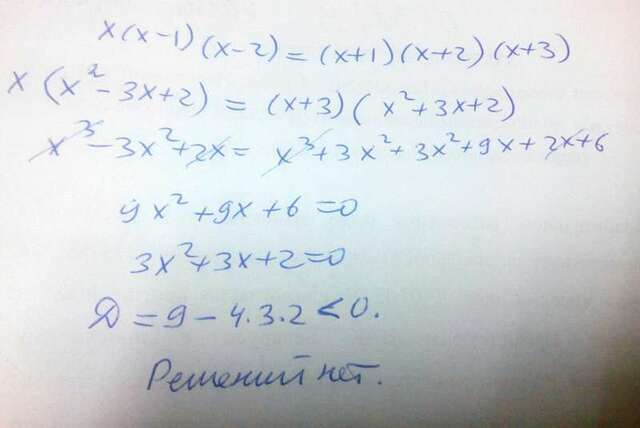 x(x-1)(x-2) = (x+1)(x+2)(x+3)
x(x²-3x+2) = (x+3)(x²+3x+2)
x³-3x²+2x = x³+3x²+3x²+9x+2x+6
9x²+9x+6=0
3x²+3x+2=0
D = 9 - 4·3·2 < 0.
Решений нет.